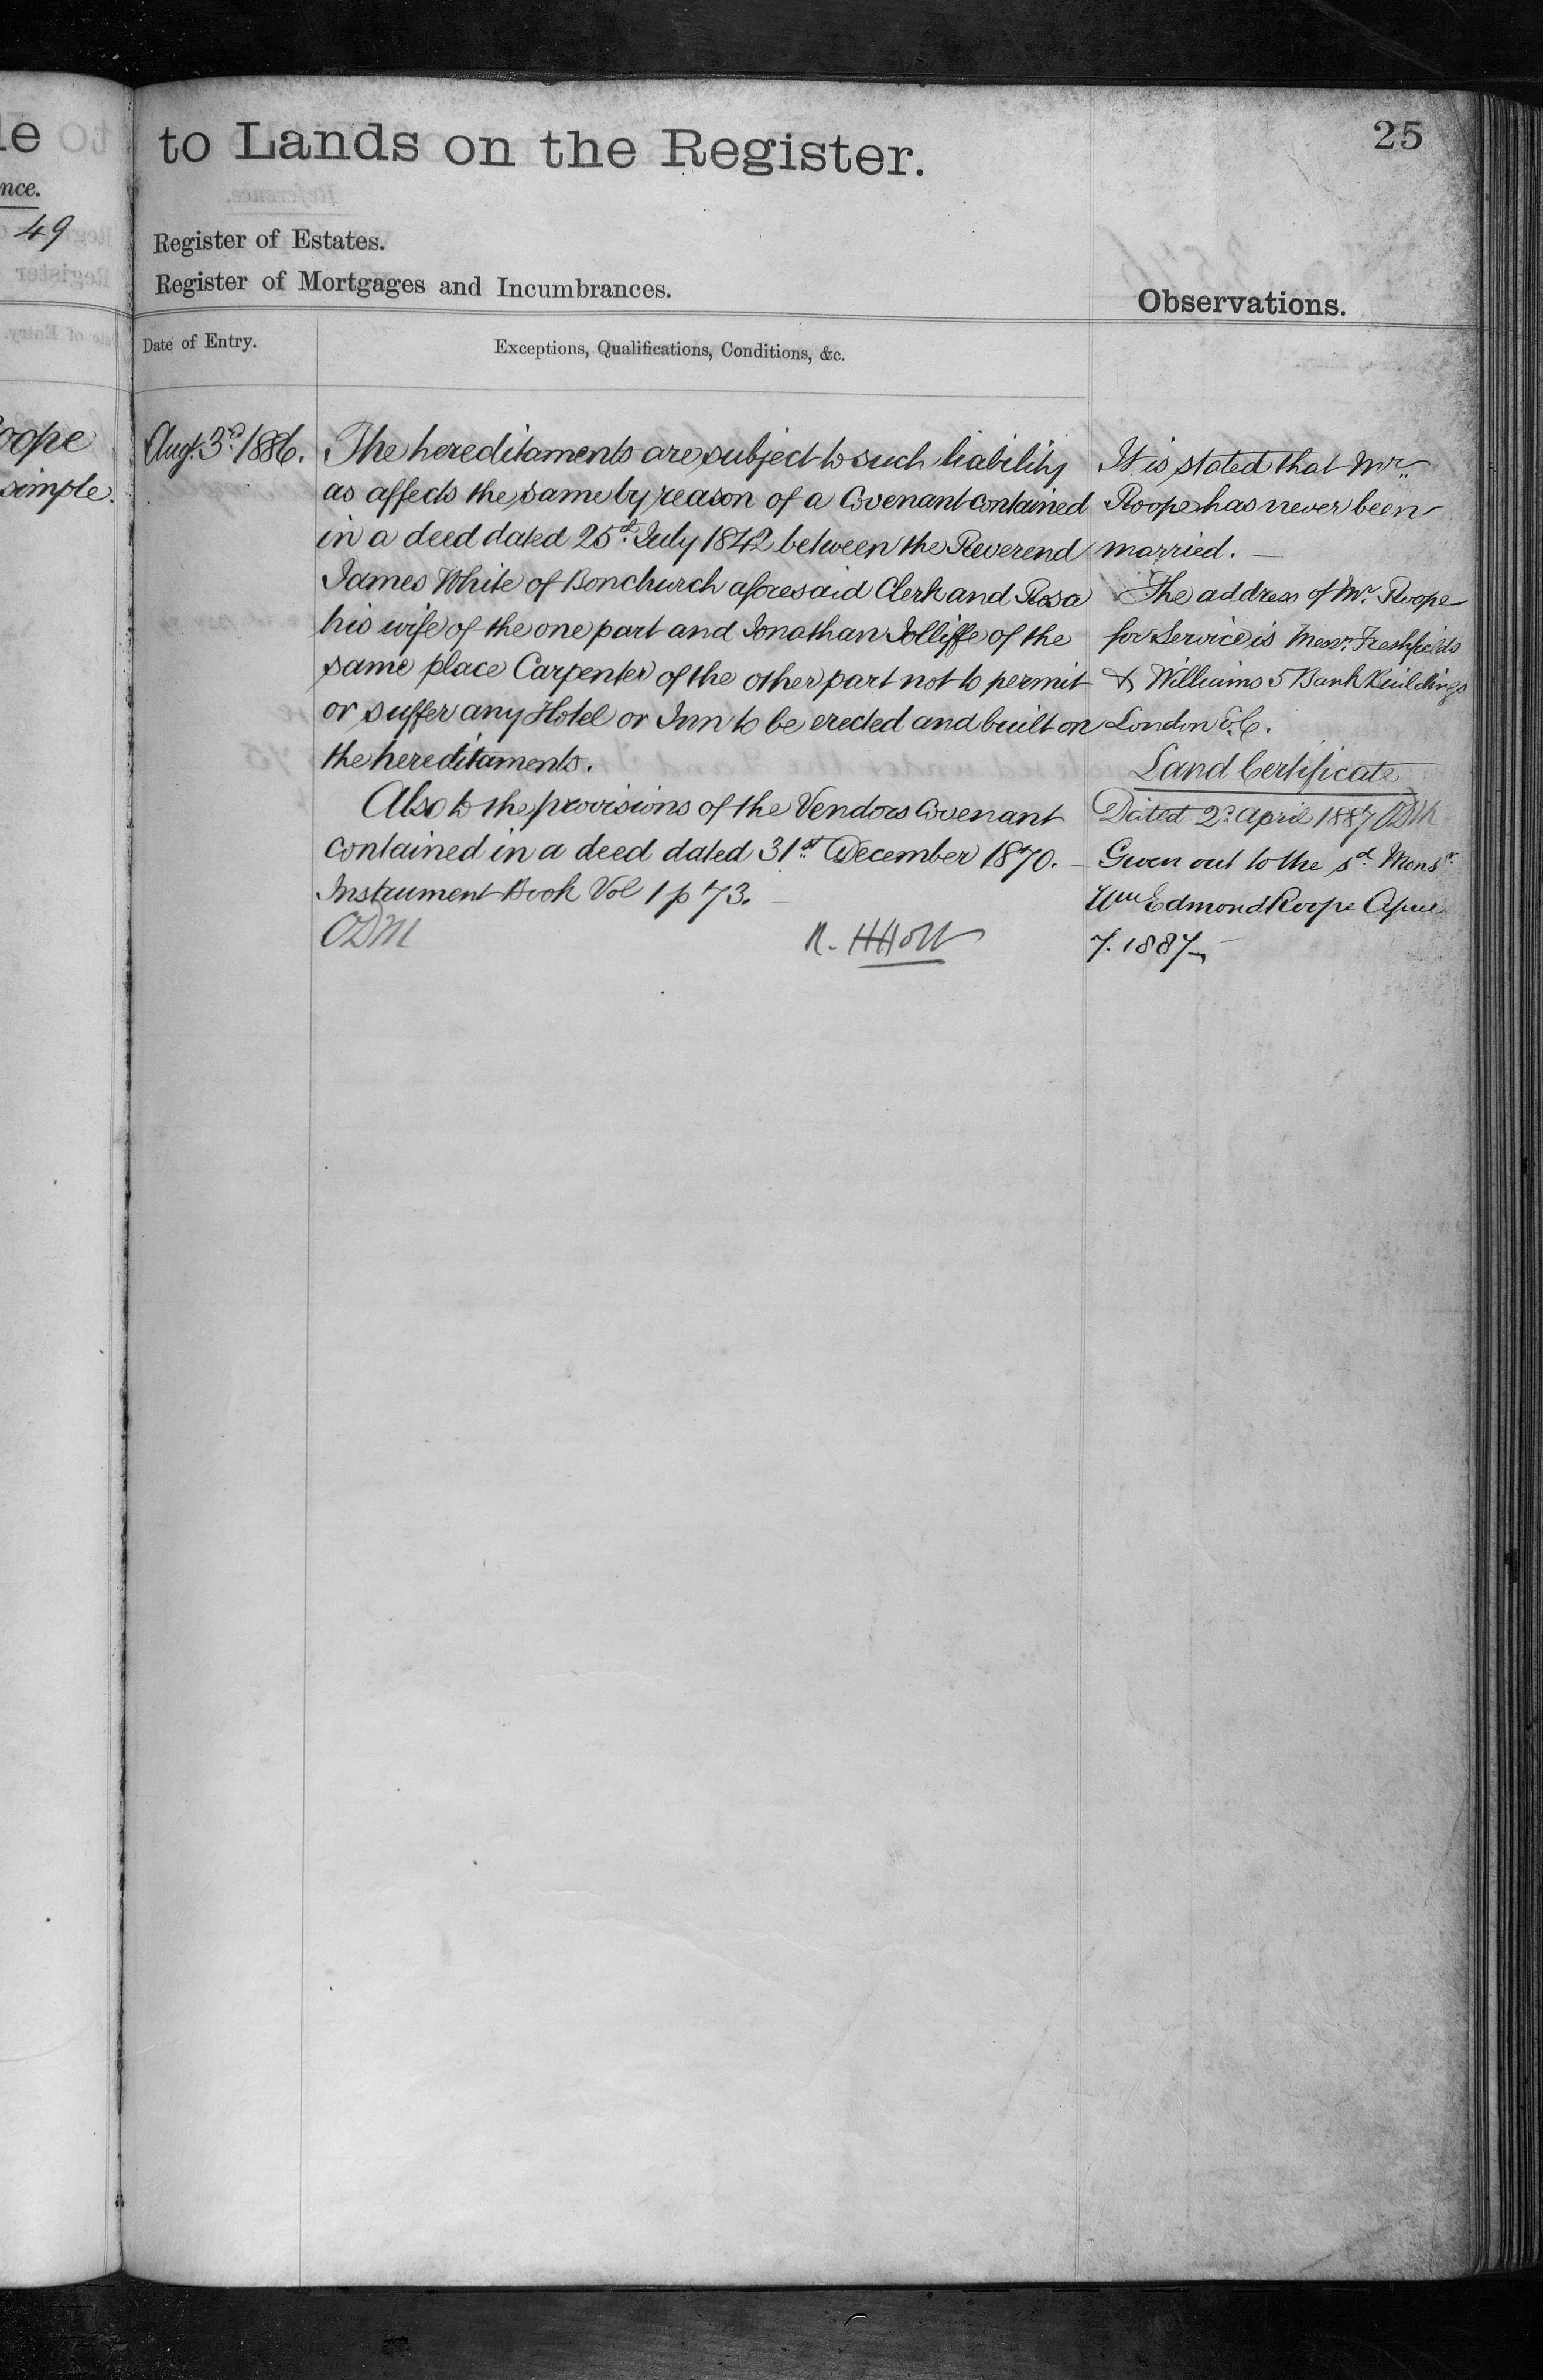 le
nce.
49
oope
simple.
to Lands on the Register.
25
Register of Estates.
Register of Mortgages and Incumbrances.
Observations.
Date of Entry.
Exceptions, Qualifications, Conditions, &c.
Augt. 3d. 1886.
The hereditaments are subject to such liability
as affects the same by reason of a Covenant contained
in a deed dated 25th. July 1842 between the Reverend
James White of Bonchurch aforesaid Clerk and Rosa
his wife of the one part and Jonathan Jolliffe of the
same place Carpenter of the other part not to permit
or suffer any Hotel or Inn to be erected and built on
the hereditaments.
Also to the provisions of the Vendors Covenant
contained in a deed dated 31st. December 1870. —
Instrument Book Vol 1 p 73. —
ODM
R. H Holt
It is stated that Mr.
Roope has never been
married. —
The address of Mr. Roope
for Service is Messrs. Freshfields
& Williams 5 Bank Buildings
London E.C.
Land Certificate
Dated 2d. April 1887 ODM
Given out to the sd.
Wm Edmond Roope April
7. 1887 —